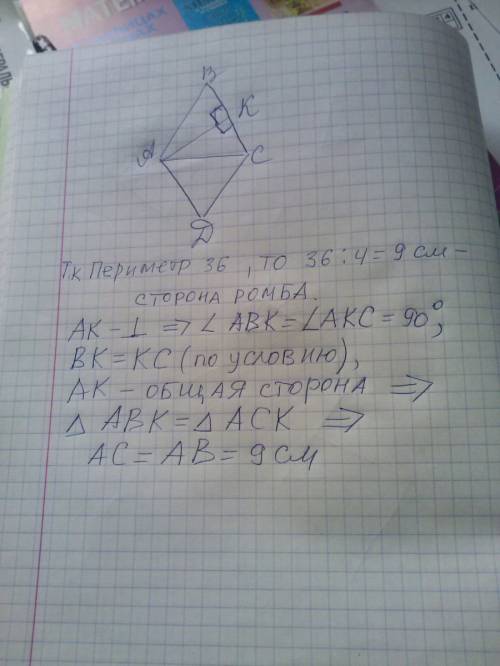 МАТЕМ
ТАБЛИЦАХ
B
K
A
C
D
Тк Периметр 36, то 36:4=9 см-
сторона ромба.
AK-⊥ => ∠ ABK=∠AKC=90°,
BK=KC (по условию),
AK-общая сторона =>
△ ABK=△ ACK =>
AC=AB=9см